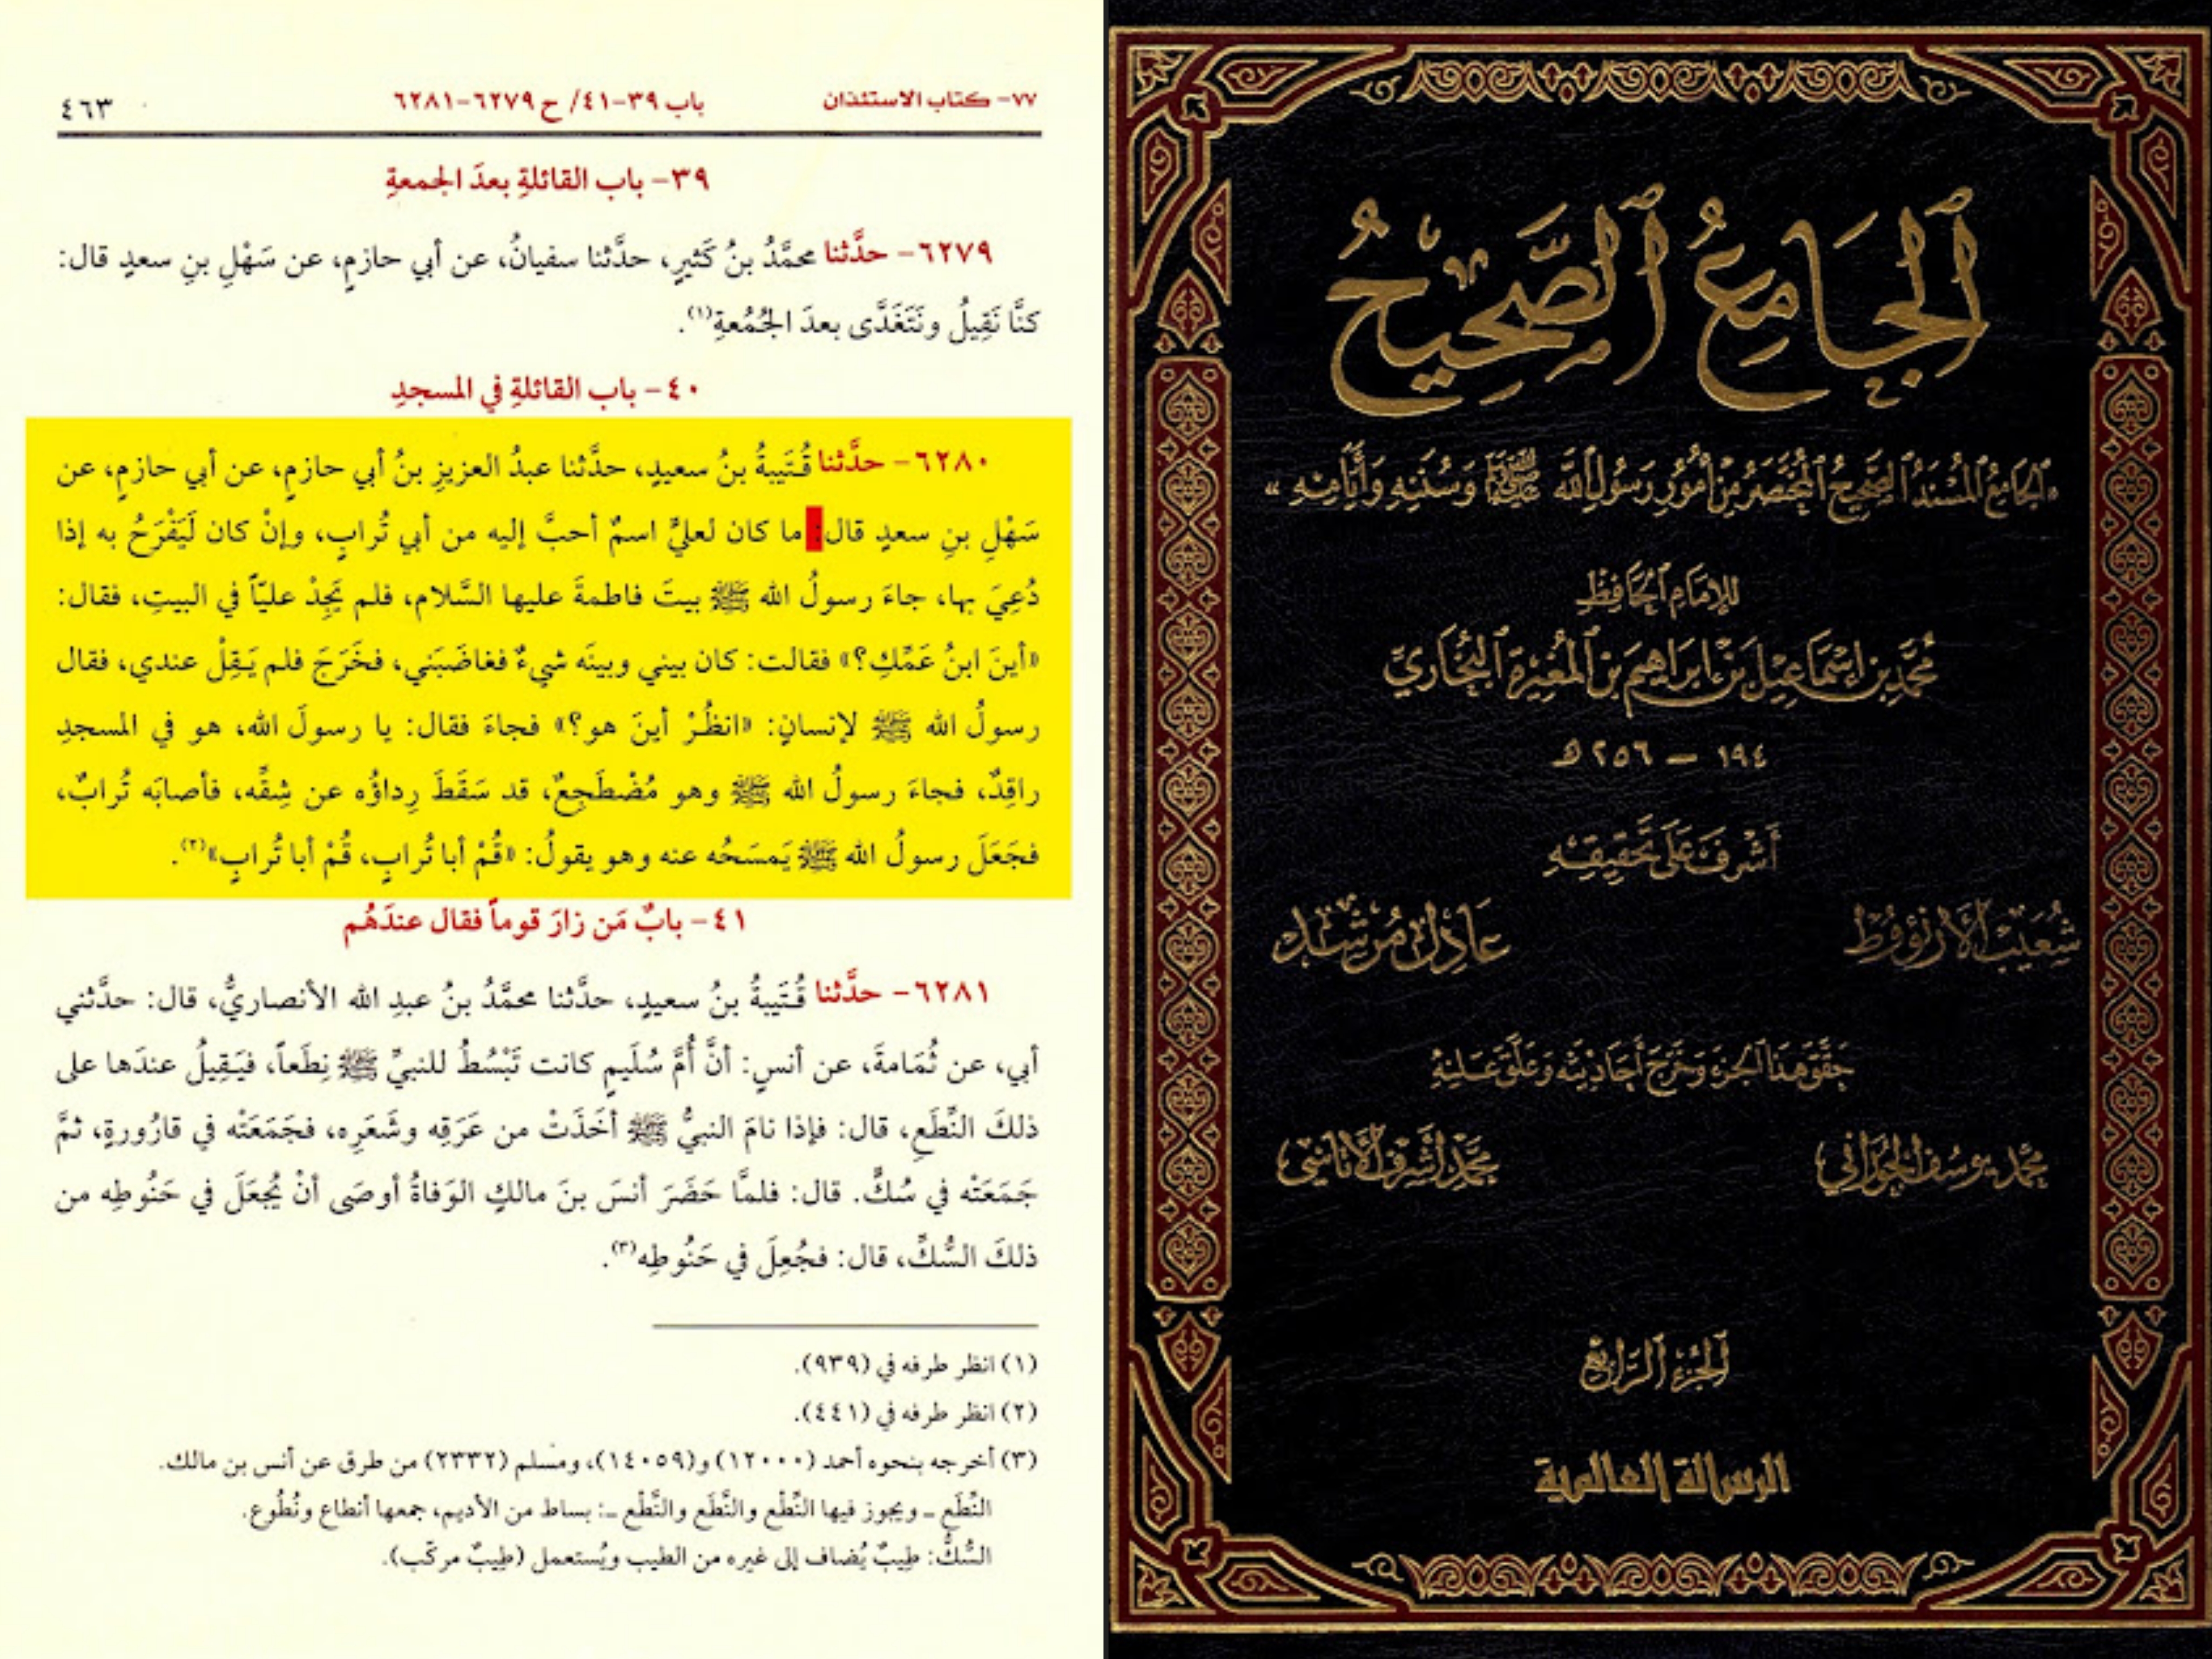 ٧٧- كتاب الاستئذان
باب ٣٩-٤١/ ح ٦٢٧٩-٦٢٨١
٤٦٣
٣٩- باب القائلةِ بعدَ الجمعةِ
٦٢٧٩- حدَّثنا محمَّدُ بنُ كَثيرٍ، حدَّثنا سفيانُ، عن أبي حازمٍ، عن سَهْلِ بنِ سعدٍ قال:
كنَّا نَقِيلُ ونَتَغَدَّى بعدَ الجُمُعةِ(١).
٤٠- باب القائلةِ في المسجدِ
٦٢٨٠- حدَّثنا قُتَيبةُ بنُ سعيدٍ، حدَّثنا عبدُ العزيزِ بنُ أبي حازمٍ، عن أبي حازمٍ، عن
سَهْلِ بنِ سعدٍ قال: ما كان لعليٍّ اسمٌ أحبَّ إليه من أبي تُرابٍ، وإنْ كان لَيَفْرَحُ به إذا
دُعِيَ بها، جاءَ رسولُ الله ﷺ بيتَ فاطمةَ عليها السَّلام، فلم يَجِدْ عليّاً في البيتِ، فقال:
«أينَ ابنُ عَمِّكِ؟» فقالت: كان بيني وبينَه شيءٌ فغاضَبَني، فخَرَجَ فلم يَقِلْ عندي، فقال
رسولُ الله ﷺ لإنسانٍ: «انظُرْ أينَ هو؟» فجاءَ فقال: يا رسولَ الله، هو في المسجدِ
راقِدٌ، فجاءَ رسولُ الله ﷺ وهو مُضْطَجِعٌ، قد سَقَطَ رِداؤُه عن شِقِّه، فأصابَه تُرابٌ،
فجَعَلَ رسولُ الله ﷺ يَمسَحُه عنه وهو يقولُ: «قُمْ أبا تُرابٍ، قُمْ أبا تُرابٍ»(٢).
٤١- بابٌ مَن زارَ قوماً فقال عندَهُم
٦٢٨١- حدَّثنا قُتَيبةُ بنُ سعيدٍ، حدَّثنا محمَّدُ بنُ عبدِ الله الأنصاريُّ، قال: حدَّثني
أبي، عن ثُمَامةَ، عن أنسٍ: أنَّ أُمَّ سُلَيمٍ كانت تَبْسُطُ للنبيِّ ﷺ نِطَعاً، فيَقِيلُ عندَها على
ذلكَ النِّطَعِ، قال: فإذا نامَ النبيُّ ﷺ أخَذَتْ من عَرَقِه وشَعَرِه، فجَمَعَتْه في قارُورةٍ، ثمَّ
جَمَعَتْه في سُكٍّ. قال: فلمَّا حَضَرَ أنسَ بنَ مالكٍ الوَفاةُ أوصَى أنْ يُجعَلَ في حَنُوطِه من
ذلكَ السُّكِّ، قال: فجُعِلَ في حَنُوطِه(٣).
(١) انظر طرفه في (٩٣٩).
(٢) انظر طرفه في (٤٤١).
(٣) أخرجه بنحوه أحمد (١٢٠٠٠) و(١٤٠٥٩)، ومسلم (٢٣٣٢) من طرق عن أنس بن مالك.
النِّطَع ـ ويجوز فيها النِّطْع والنَّطَع والنَّطْع ـ: بساط من الأديم، جمعها أنطاع ونُطُوع.
السُّكُّ: طِيبٌ يُضاف إلى غيره من الطيب ويُستعمل (طِيبٌ مركّب).
الجَامِعُ الصَّحِيحُ
«الجَامِعُ المُسْنَدُ الصَّحِيحُ المُخْتَصَرُ مِنْ أُمُورِ رَسُولِ اللَّه ﷺ وَسُنَنِهِ وَأَيَّامِهِ»
لِلإِمَامِ الحَافِظِ
مُحَمَّد بْن إِسْمَاعِيْل بْن إبْرَاهِيم بْن المُغِيْرَة البُخَارِيّ
١٩٤ – ٢٥٦ ه
أَشْرَفَ عَلَى تَحْقِيْقِهِ
شُعَيْب الأَرْنَؤُوط
عَادِل مُرْشِد
حَقَّقَ هَذَا الجُزْءَ وَخَرَّجَ أَحَادِيْثَه وَعَلَّقَ عَلَيْهِ
محمَّد يوسُف الجوراني
محمَّد أشرف الأتاسي
الجُزْءُ الرَّابِعُ
الرسالة العالمية